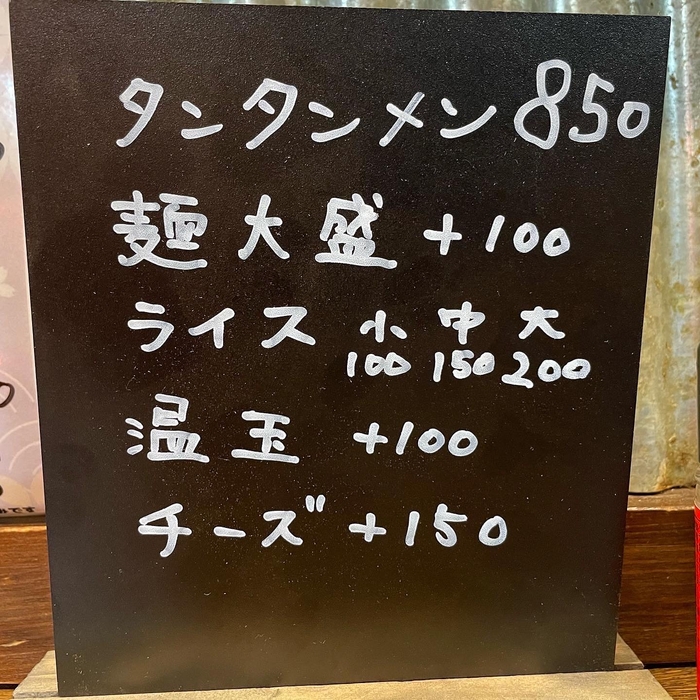 タンタンメン 850
麺大盛 +100
ライス 小 中 大
100 150 200
温玉 +100
チーズ +150
です